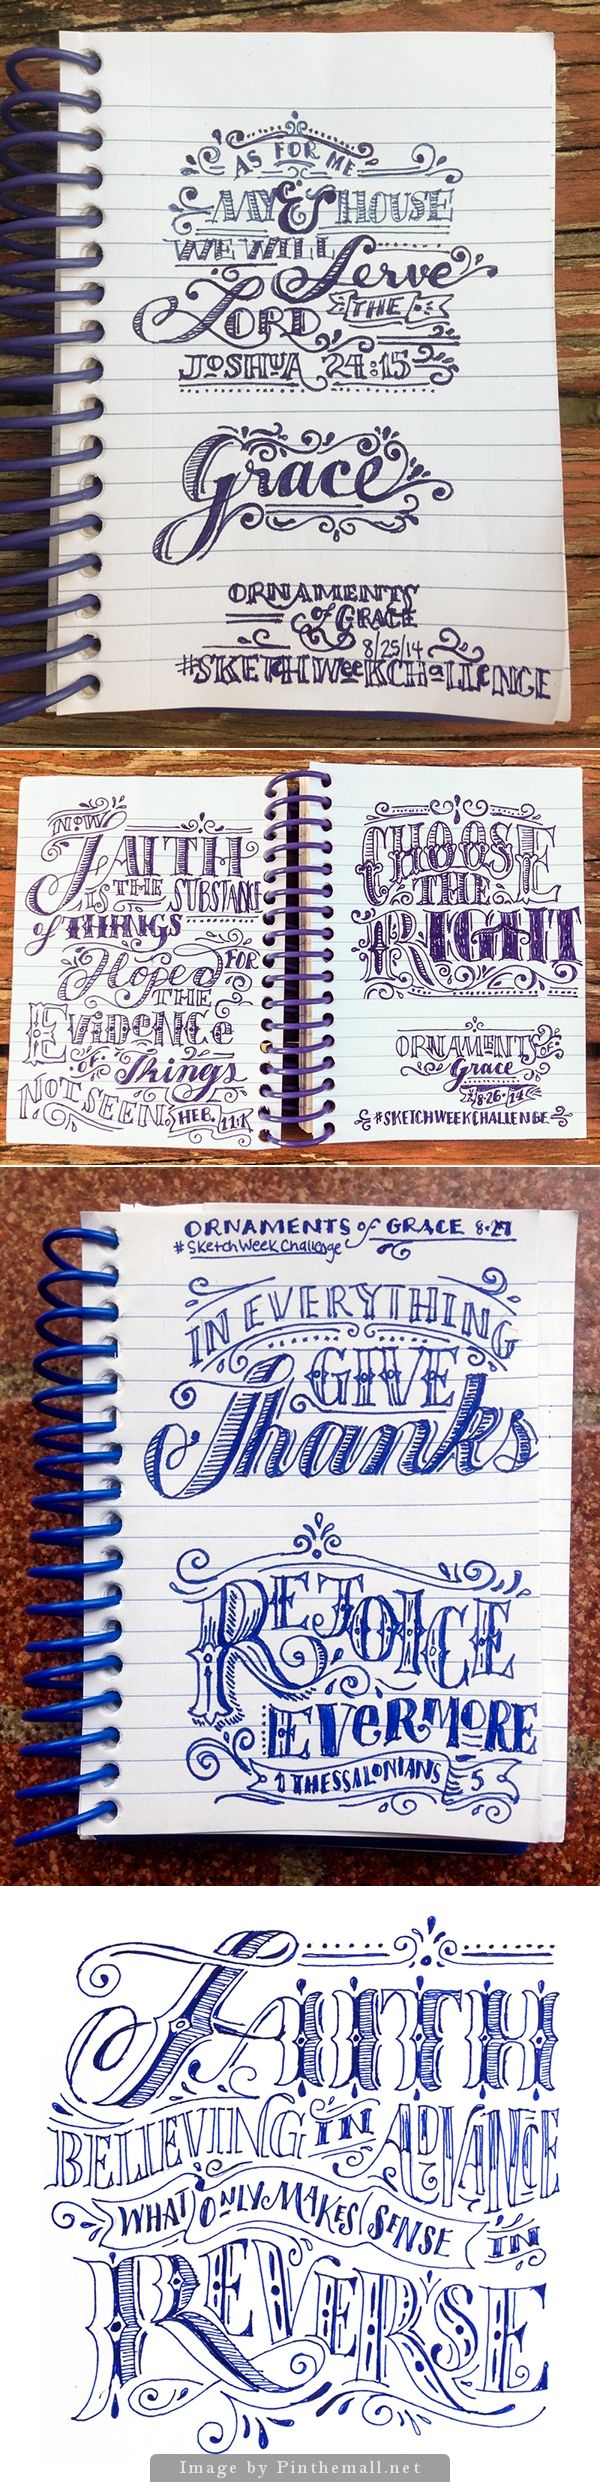 AS FOR ME
MY & HOUSE
WE WILL Serve
THE
LORD
JOSHUA 24:15
Grace
ORNAMENTS
of GRACE
8/25/14
#SKETCHWEEKCHALLENGE
NOW
FAITH
IS THE SUBSTANCE
of THINGS
Hoped FOR
THE
EVIDENCE
OF Things
NOT SEEN. HEB. 11:1
CHOOSE
THE
RIGHT
ORNAMENTS OF
Grace
8-26-14
#SKETCHWEEKCHALLENGE
ORNAMENTS of GRACE 8-27
#SketchWeekChallenge
IN EVERYTHING
GIVE
Thanks
REJOICE
EVERMORE
1 THESSALONIANS 5
FAITH
BELIEVING IN ADVANCE
WHAT ONLY MAKES SENSE IN
REVERSE
Image by Pinthemall.net